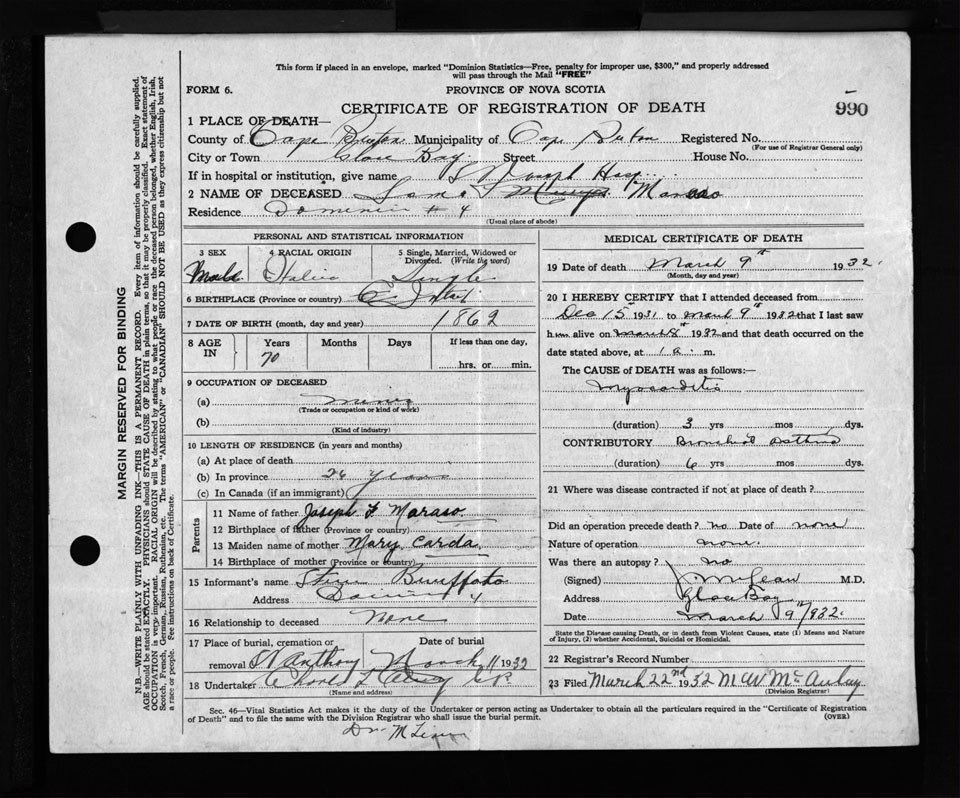 This form if placed in an envelope, marked "Dominion Statistics—Free, penalty for improper use, $300," and properly addressed
will pass through the Mail "FREE"
FORM 6. PROVINCE OF NOVA SCOTIA
CERTIFICATE OF REGISTRATION OF DEATH 990
1 PLACE OF DEATH—
County of Cape Breton Municipality of Cape Breton Registered No.
(For use of Registrar General only)
City or Town Glace Bay Street House No.
If in hospital or institution, give name St Joseph Hosp
2 NAME OF DECEASED Maraso
Residence Dominion # 4
(Usual place of abode)
PERSONAL AND STATISTICAL INFORMATION
3 SEX 4 RACIAL ORIGIN 5 Single, Married, Widowed or
Divorced. (Write the word)
Male Single
6 BIRTHPLACE (Province or country) Italy
7 DATE OF BIRTH (month, day and year) 1862
8 AGE IN Years Months Days If less than one day,
70 hrs. or min.
9 OCCUPATION OF DECEASED
(a) miner
(Trade or occupation or kind of work)
(b)
(Kind of industry)
10 LENGTH OF RESIDENCE (in years and months)
(a) At place of death
(b) In province 26 years
(c) In Canada (if an immigrant)
Parents
11 Name of father Joseph F Maraso
12 Birthplace of father (Province or country)
13 Maiden name of mother Mary Carda
14 Birthplace of mother (Province or country)
15 Informant's name
Address Dominion 4
16 Relationship to deceased None
17 Place of burial, cremation or Date of burial
removal St Anthony March 11 1932
18 Undertaker Charles
(Name and address)
MEDICAL CERTIFICATE OF DEATH
19 Date of death March 9th 1932
(Month, day and year)
20 I HEREBY CERTIFY that I attended deceased from
Dec 15th 1931 to March 9th 1932 that I last saw
him alive on March 8th 1932 and that death occurred on the
date stated above, at 1 a. m.
The CAUSE of DEATH was as follows:—
Myocarditis
(duration) 3 yrs mos dys.
CONTRIBUTORY Bronchial Asthma
(duration) 6 yrs mos dys.
21 Where was disease contracted if not at place of death?
Did an operation precede death? no Date of none
Nature of operation none.
Was there an autopsy? no
(Signed) J. McLean M.D.
Address Glace Bay
Date March 9th 1932.
State the Disease causing Death, or in death from Violent Causes, state (1) Means and Nature
of Injury, (2) whether Accidental, Suicidal or Homicidal.
22 Registrar's Record Number
23 Filed March 22nd 1932 M.W. McAulay
(Division Registrar)
Sec. 46—Vital Statistics Act makes it the duty of the Undertaker or person acting as Undertaker to obtain all the particulars required in the "Certificate of Registration
of Death" and to file the same with the Division Registrar who shall issue the burial permit. (OVER)
Dr. McLean
MARGIN RESERVED FOR BINDING
N.B.—WRITE PLAINLY WITH UNFADING INK—THIS IS A PERMANENT RECORD. Every item of information should be carefully supplied.
AGE should be stated EXACTLY. PHYSICIANS should STATE CAUSE OF DEATH in plain terms, so that it may be properly classified. Exact statement of
OCCUPATION is very important. RACIAL ORIGIN will be described by stating to what people or race the deceased person belonged, whether English, Irish,
Scotch, French, German, Russian, Ruthenian, etc. The terms "AMERICAN" or "CANADIAN" SHOULD NOT BE USED as they express citizenship but not
a race or people. See instructions on back of Certificate.